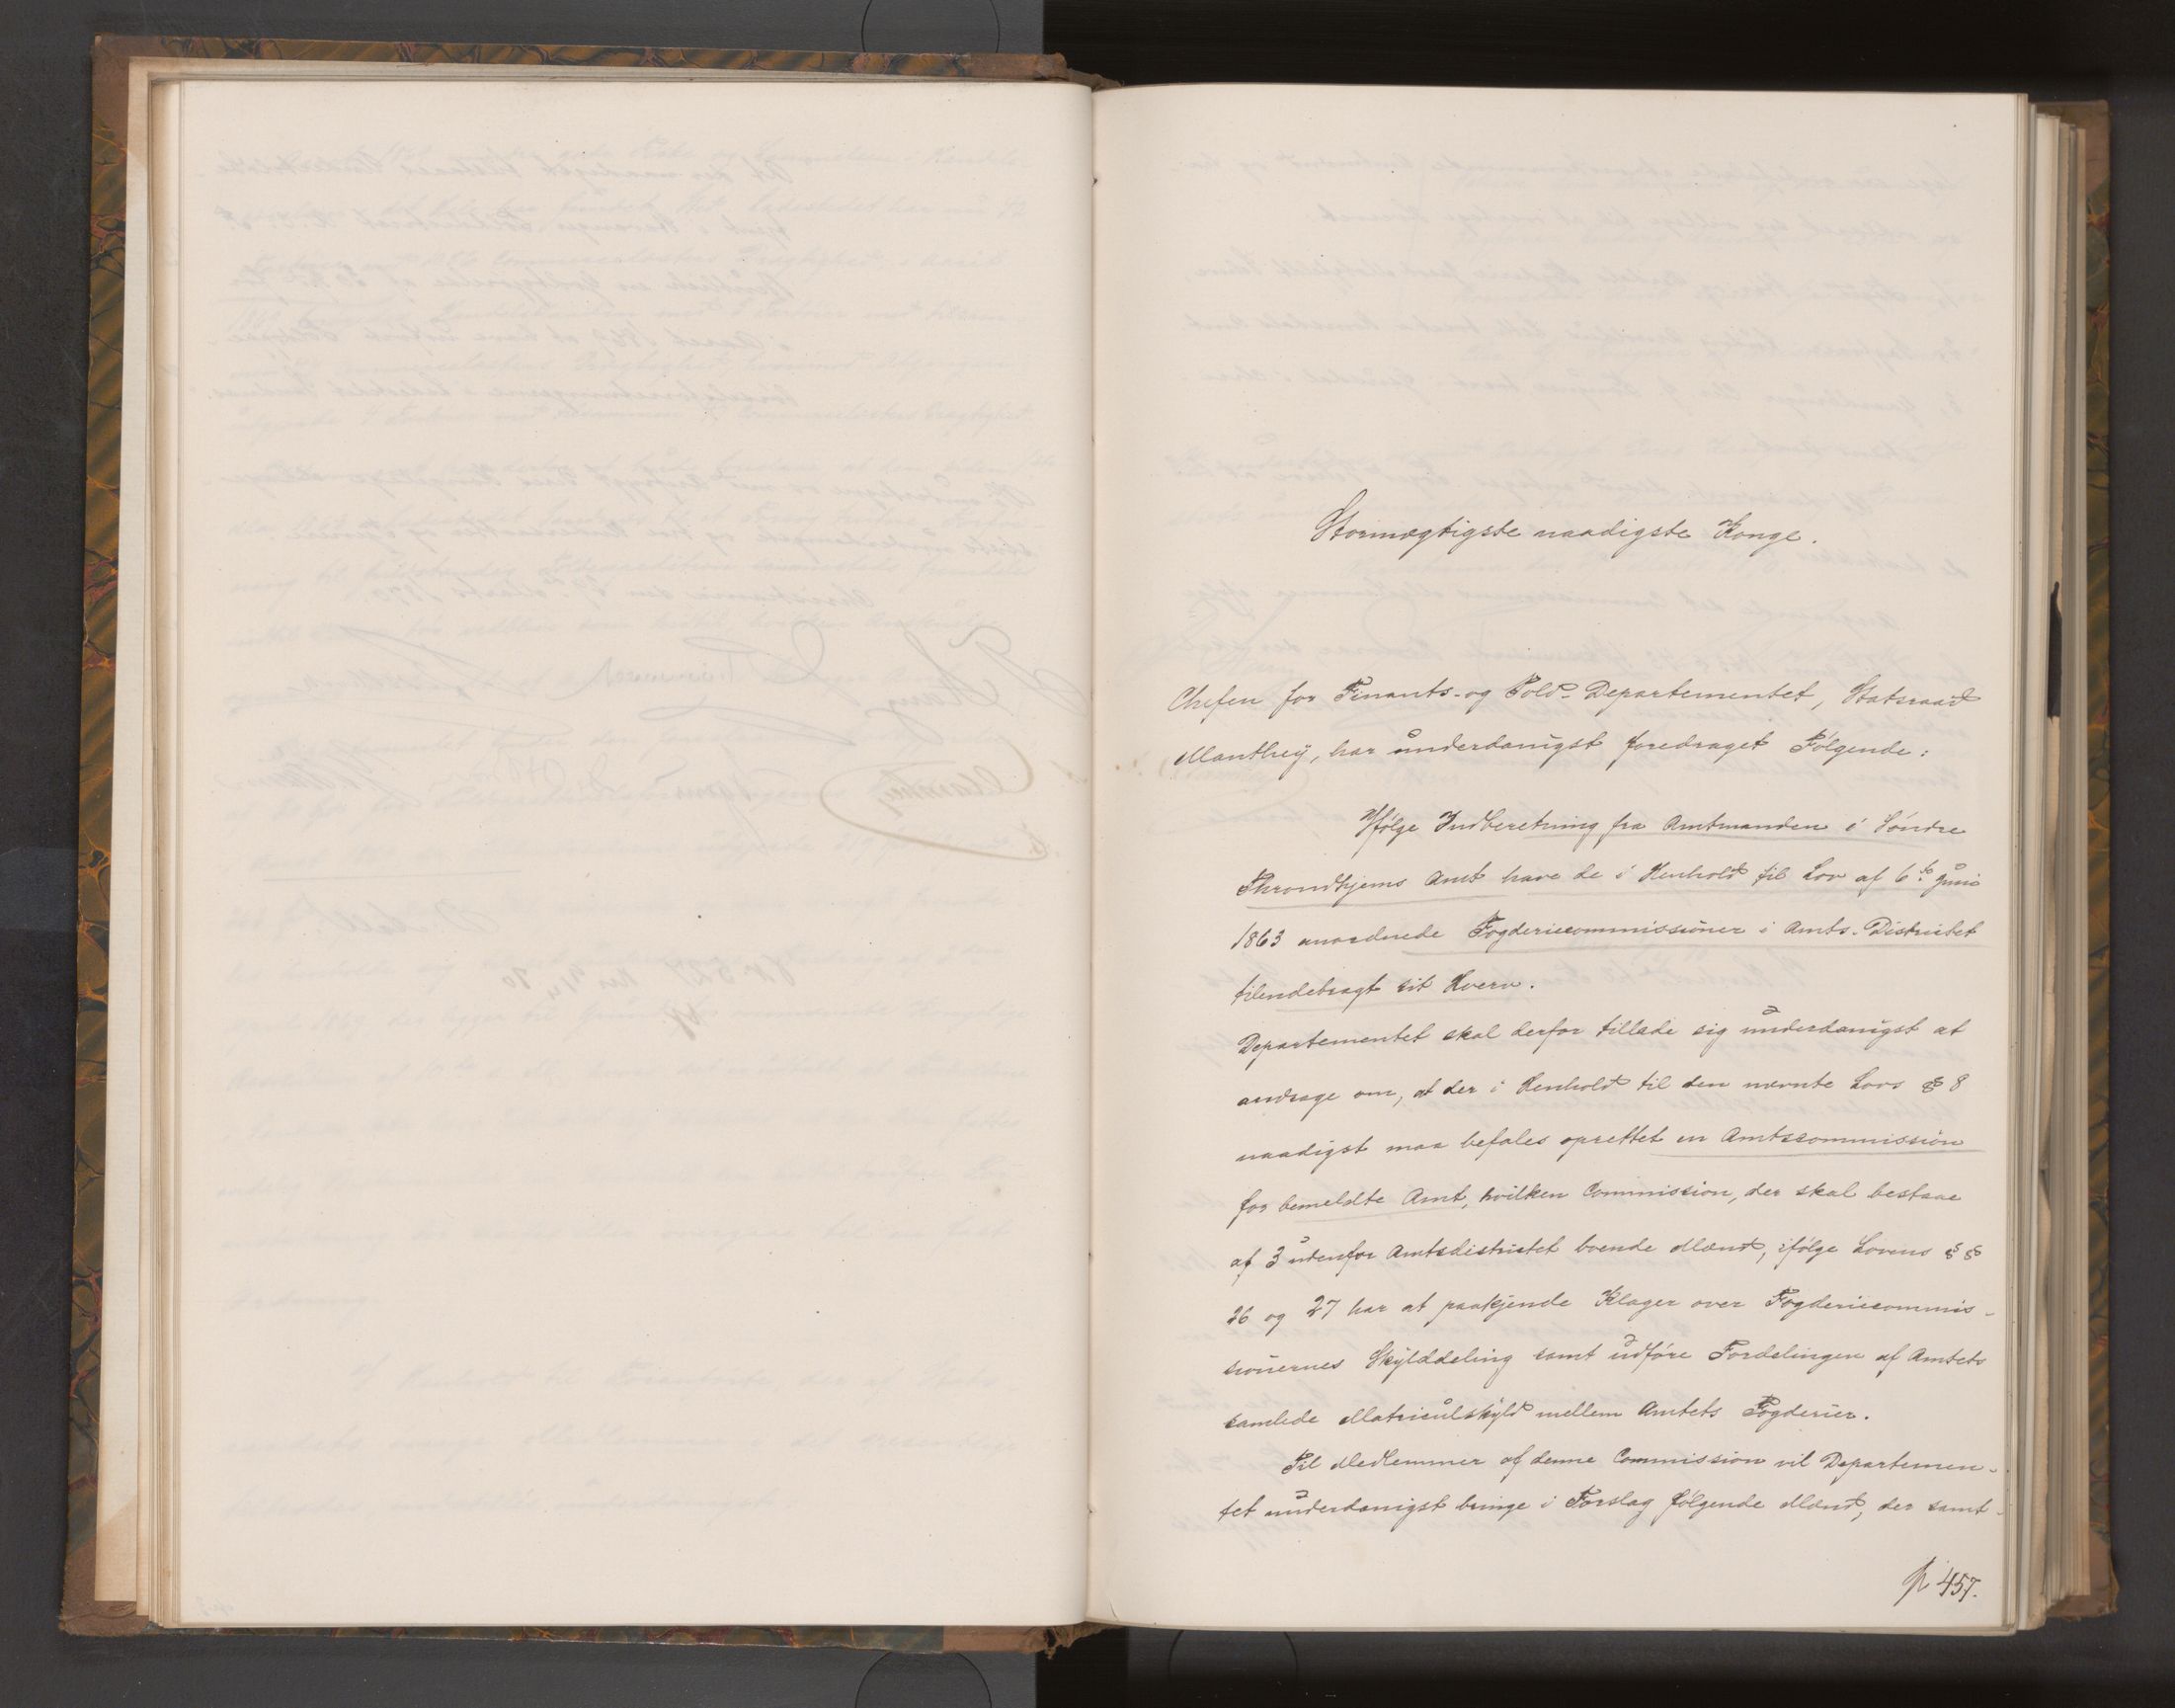 Stormægtigste naadigste Konge.
Chefen for Finants- og Told-Departementet, Statsraad
Manthey, har underdanigst foredraget Følgende:
Ifølge Indberetning fra Amtmanden i Søndre
Throndhjems Amt have de i Henhold til Lov af 6te Juni
1863 anordnede Fogderiecommissioner i Amts-Districtet
tilendebragt sit Hverv.
Departementet skal derfor tillade sig underdanigst at
andrage om, at der i Henhold til den nævnte Lovs § 8
naadigst maa befales oprettet en Amtscommission
for bemeldte Amt, hvilken Commission, der skal bestaae
af 3 udenfor Amtsdistrictet boende Mænd, ifølge Lovens §§
26 og 27 har at paakjende Klager over Fogderiecommis-
sionernes Skylddeling samt udføre Fordelingen af Amtets
samlede Matriculskyld mellem Amtets Fogderier.
Til Medlemmer af denne Commission vil Departemen-
tet underdanigst bringe i Forslag følgende Mænd, der samt-
457.